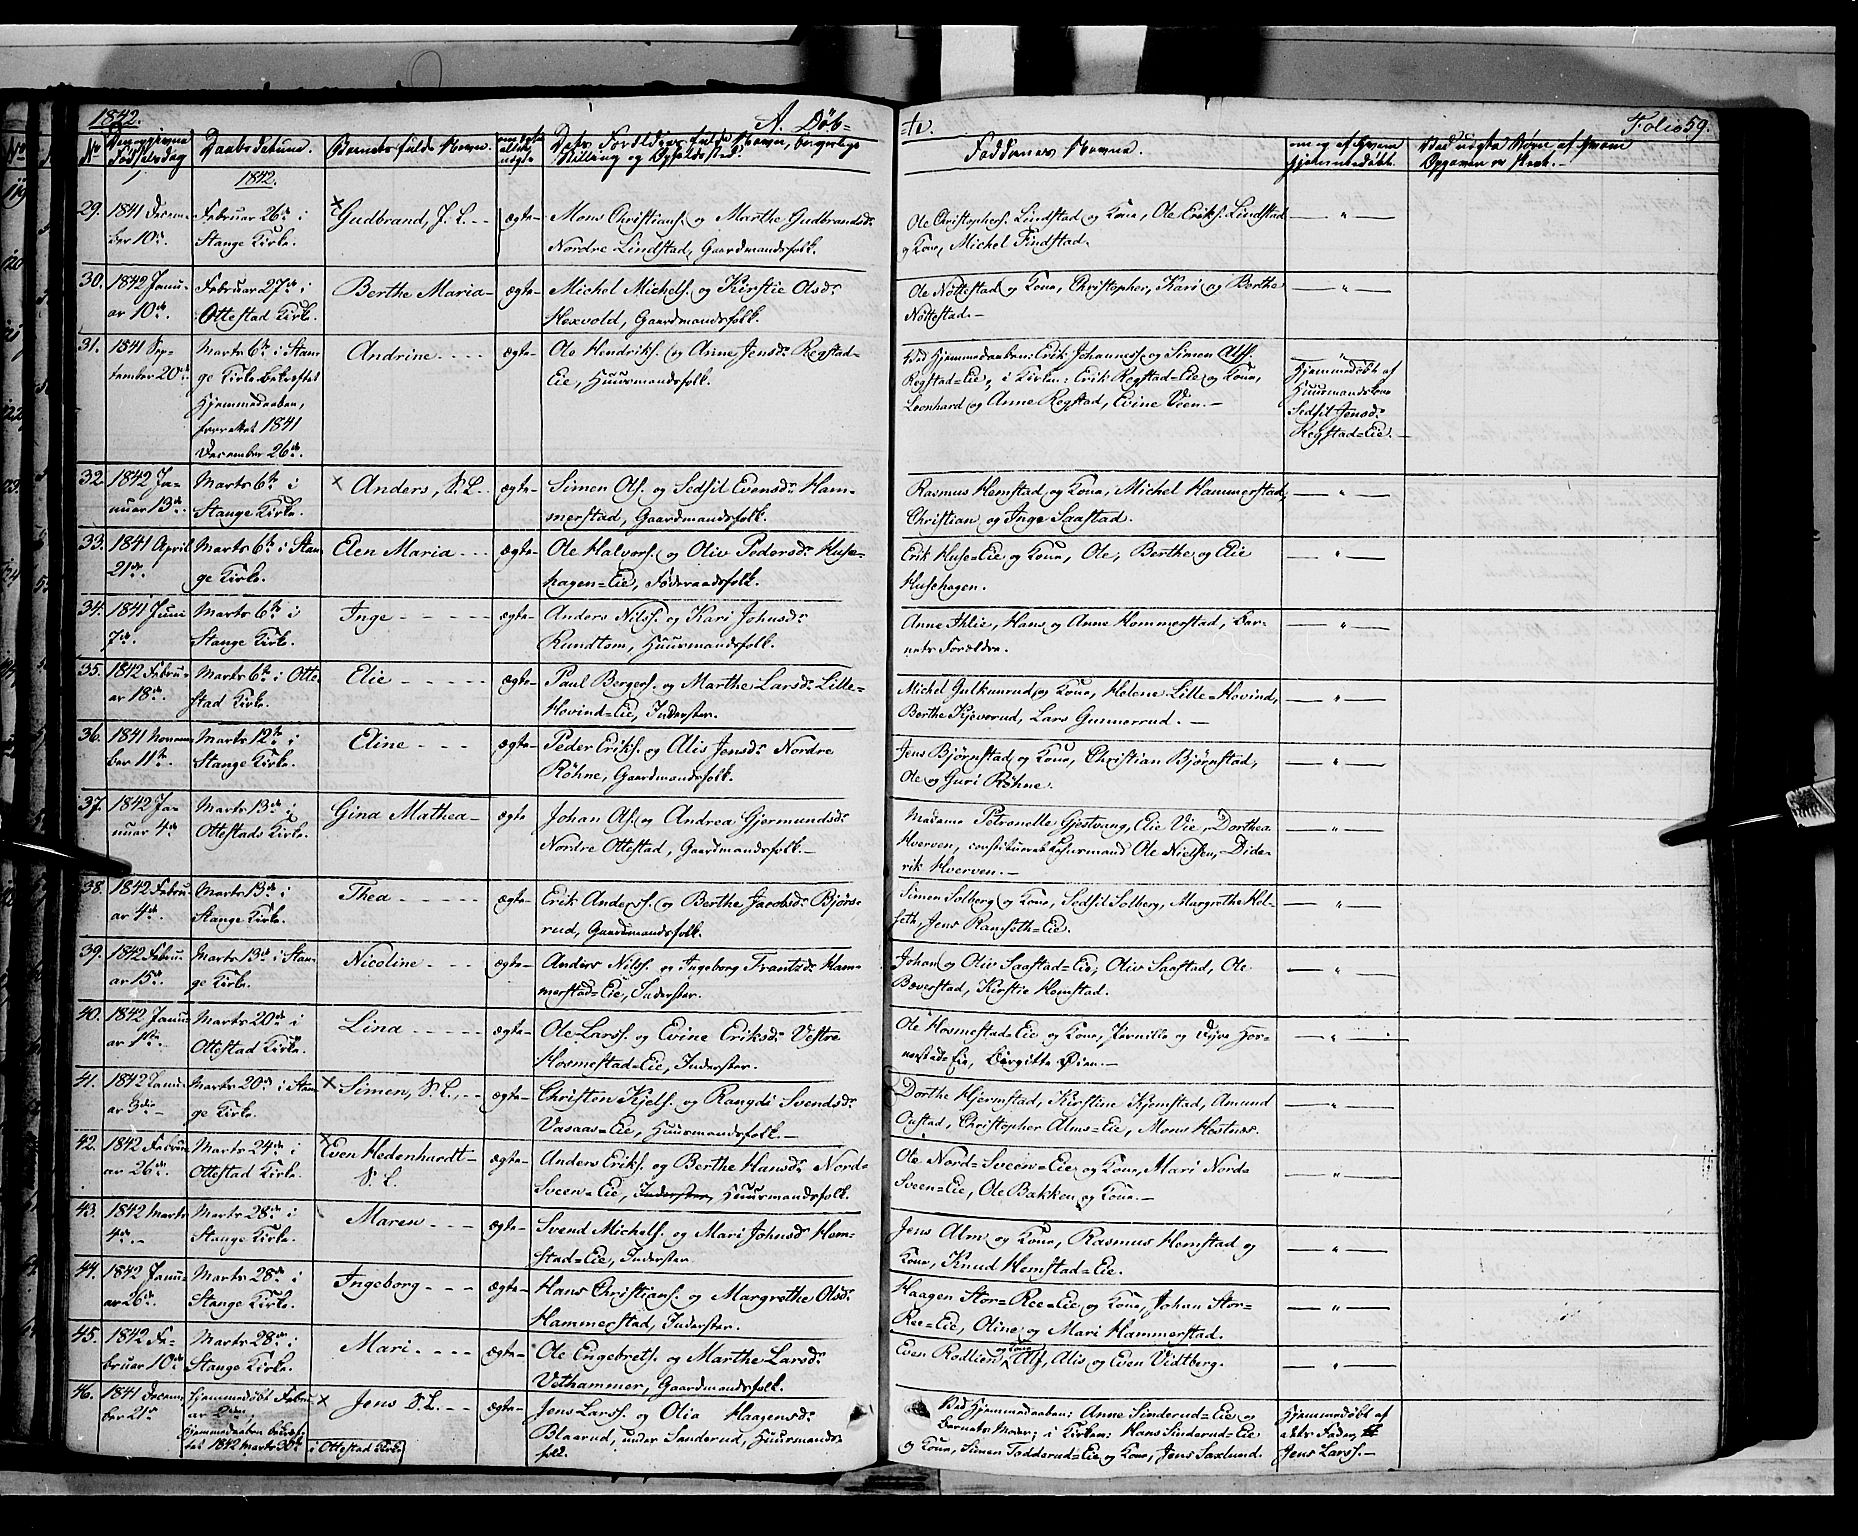 1842.
A. Døb-
te.
Folio 59.
No
Den opgivne Fødselsdag
Daabsdatum.
Barnets fulde Navn.
om ægte eller uægte
Dets Forældres fulde Navn, borgerlige Stilling og Opholdssted.
Faddernes Navne.
om og af hvem hjemmedøbt.
1842.
29. 1841 Decem-
ber 10de.
Februar 26de i
Stange Kirke.
× Gudbrand, S. L. - -
ægte-
Mons Christians. og Marthe Gudbrandsdr.
Nordre Lindstad, Gaardmandsfolk.
Ole Christophers. Lindstad og Kone, Ole Eriks. Lindstad
og Kone, Michel Findstad.
— " —
30. 1842 Janu-
ar 10de.
Februar 27de i
Ottestad Kirke.
Berthe Maria-
ægte-
Michel Michels. og Kirstie Olsdr.
Hexvold, Gaardmandsfolk.
Ole Nøttestad og Kone, Christopher, Kari og Berthe
Nøttestad.-
— " —
31. 1841 Sep-
tember 20de.
Marts 6te i Stan-
ge Kirke bekræftet
Hjemmedaaben,
forrettet 1841
December 26de.
Andrine - - - -
ægte-
Ole Hendriks. og Anne Jensdr. Rogstad-
Eie, Huusmandsfolk.
Ved Hjemmedaaben: Erik Johanness. og Simen Alfs.
Rogstad=Eie, i Kirken: Erik Rogstad=Eie og Kone,
Leonhard og Anne Rogstad, Evine Veen. -
Hjemmedøbt af
Huusmandskone
Sedsil Jensdr.
Rogstad=Eie. -
32. 1842 Ja-
nuar 13de.
Marts 6te i
Stange Kirke.
× Anders, S. L.
ægte-
Simen Ols. og Sedsil Evensdr. Ham-
merstad, Gaardmandsfolk.
Rasmus Hemstad og Kone, Michel Hammerstad,
Christian og Inge Saastad.
— " —
33. 1841 April
21de.
Marts 6te i Stan-
ge Kirke.
Elen Maria - -
ægte-
Ole Halvors. og Oliv Pedersdr. Huse-
hagen=Eie, Føderaadsfolk.
Erik Huse=Eie og Kone, Ole, Berthe og Elie
Husehagen.
— " —
34. 1841 Juni
7de.
Marts 6te i
Stange Kirke.
Inge - - - - -
ægte-
Anders Nilss. og Kari Johnsdr.
Rundtom, Huusmandsfolk.
Anne Ihlie, Hans og Anne Hommerstad, Bar-
nets Forældre.
— " —
35. 1842 Febru-
ar 18de.
Marts 6te i Otte-
stad Kirke.
Elie - - - -
ægte-
Paul Bergers. og Marthe Larsdr. Lille-
Hovind=Eie, Inderster.
Michel Gulkunrud og Kone, Helene Lille=Hovind,
Berthe Kjeverud, Lars Gunnerrud. -
— " —
36. 1841 Novem-
ber 11te.
Marts 12te i
Stange Kirke.
Eline - - -
ægte-
Peder Eriks. og Alis Jensdr. Nordre
Røhne, Gaardmandsfolk.
Jens Bjørnstad og Kone, Christian Bjørnstad,
Ole og Guri Røhne.
— " —
37. 1842 Ja-
nuar 4de.
Marts 13de i
Ottestads Kirke.
Gina Mathea-
ægte
Johan Ols. og Andrea Gjermundsdr.
Nordre Ottestad, Gaardmandsfolk. -
Madame Petronelle Gjestvang, Elie Vie, Dorthea
Hverven, constitueret Lensmand Ole Nielsen, Dide-
rik Hverven. -
— " —
38. 1842 Febru-
ar 4de.
Marts 13de i
Stange Kirke.
Thea - - - - -
ægte-
Erik Anderss. og Berthe Jacobsdr. Bjørs-
rud, Gaardmandsfolk.
Simen Solberg og Kone, Sedsil Solberg, Margrethe Hol-
seth, Jens Ramseth=Eie.
— " —
39. 1842 Febru-
ar 15de.
Marts 13de i Stan-
ge Kirke.
Nicoline - - -
ægte-
Anders Nilss. og Ingeborg Frantzdr. Ham-
merstad=Eie, Inderster.
Johan og Oliv Saastad=Eie, Oliv Saastad, Ole
Bæverstad, Kirstie Hemstad.
— " —
40. 1842 Janu-
ar 1ste.
Marts 20de i
Ottestad Kirke.
Lina - - - - -
ægte-
Ole Larss. og Evine Eriksdr. Vestre
Hosmestad=Eie, Inderster.
Ole Hosmestad=Eie og Kone, Pernille og Dyre Hos-
mestad=Eie, Birgitte Øien. -
— " —
41. 1842 Janu-
ar 3die
Marts 20de i Stan-
ge Kirke.
× Simen, S. L. - -
ægte-
Christen Kjels. og Rangdi Svendsdr.
Vasaas=Eie, Huusmandsfolk. -
Dorthe Hjermstad, Kirstine Hjemstad, Amund
Opstad, Christopher Alms=Eie, Mons Hostnæs.
— " —
42. 1842 Febru-
ar 26de.
Marts 24de i
Ottestad Kirke.
× Even Hedenhardt-
S. L.
ægte-
Anders Eriks. og Berthe Hansdr. Nord-
Sveen=Eie, Inderster, Huusmandsfolk.
Ole Nord=Sveen=Eie og Kone, Mari Nord-
Sveen=Eie, Ole Bakken og Kone. -
— " —
43. 1842 Marts
4de. -
Marts 28de i
Stange Kirke.
Maren - - -
ægte-
Svend Michels. og Mari Johnsdr. Hem-
stad=Eie, Inderster.
Jens Alm og Kone, Rasmus Hemstad og
Kone, Knud Hemstad=Eie.
— " —
44. 1842 Janu-
ar 26de.
Marts 28de i
Stange Kirke.
Ingeborg - - -
ægte-
Hans Christians. og Margrethe Olsdr.
Hammerstad, Inderster.
Haagen Stor=Ree=Eie og Kone, Johan Stor-
Ree=Eie, Oline og Mari Hammerstad.
— " —
45. 1842 Fe-
bruar 10de
Marts 28de i
Stange Kirke.
Mari - - - -
ægte-
Ole Engebrets. og Marthe Larsdr.
Vethammer, Gaardmandsfolk.
Even Rodlien og Kone, Alf, Alis og Even Vidtberg.
— " —
46. 1841 Decem-
ber 21de
Hjemmedøbt Febru-
ar
Hjemmedaaben bekræf-
tet 1842 Marts 30te i Ottestad Kirke
× Jens S. L. - -
ægte-
Jens Larss. og Olia Haagensdr.
Blaarud, under Sanderud, Huusmands-
folk.
Ved Hjemmedaaben: Anne Sinderud=Eie og
Barnets Moder, i Kirken: Hans Sinderud=Eie
og Kone, Simen Todderud=Eie og Kone, Jens Saxlund.
Hjemmedøbt af
dets Fader,
Jens Larss. -